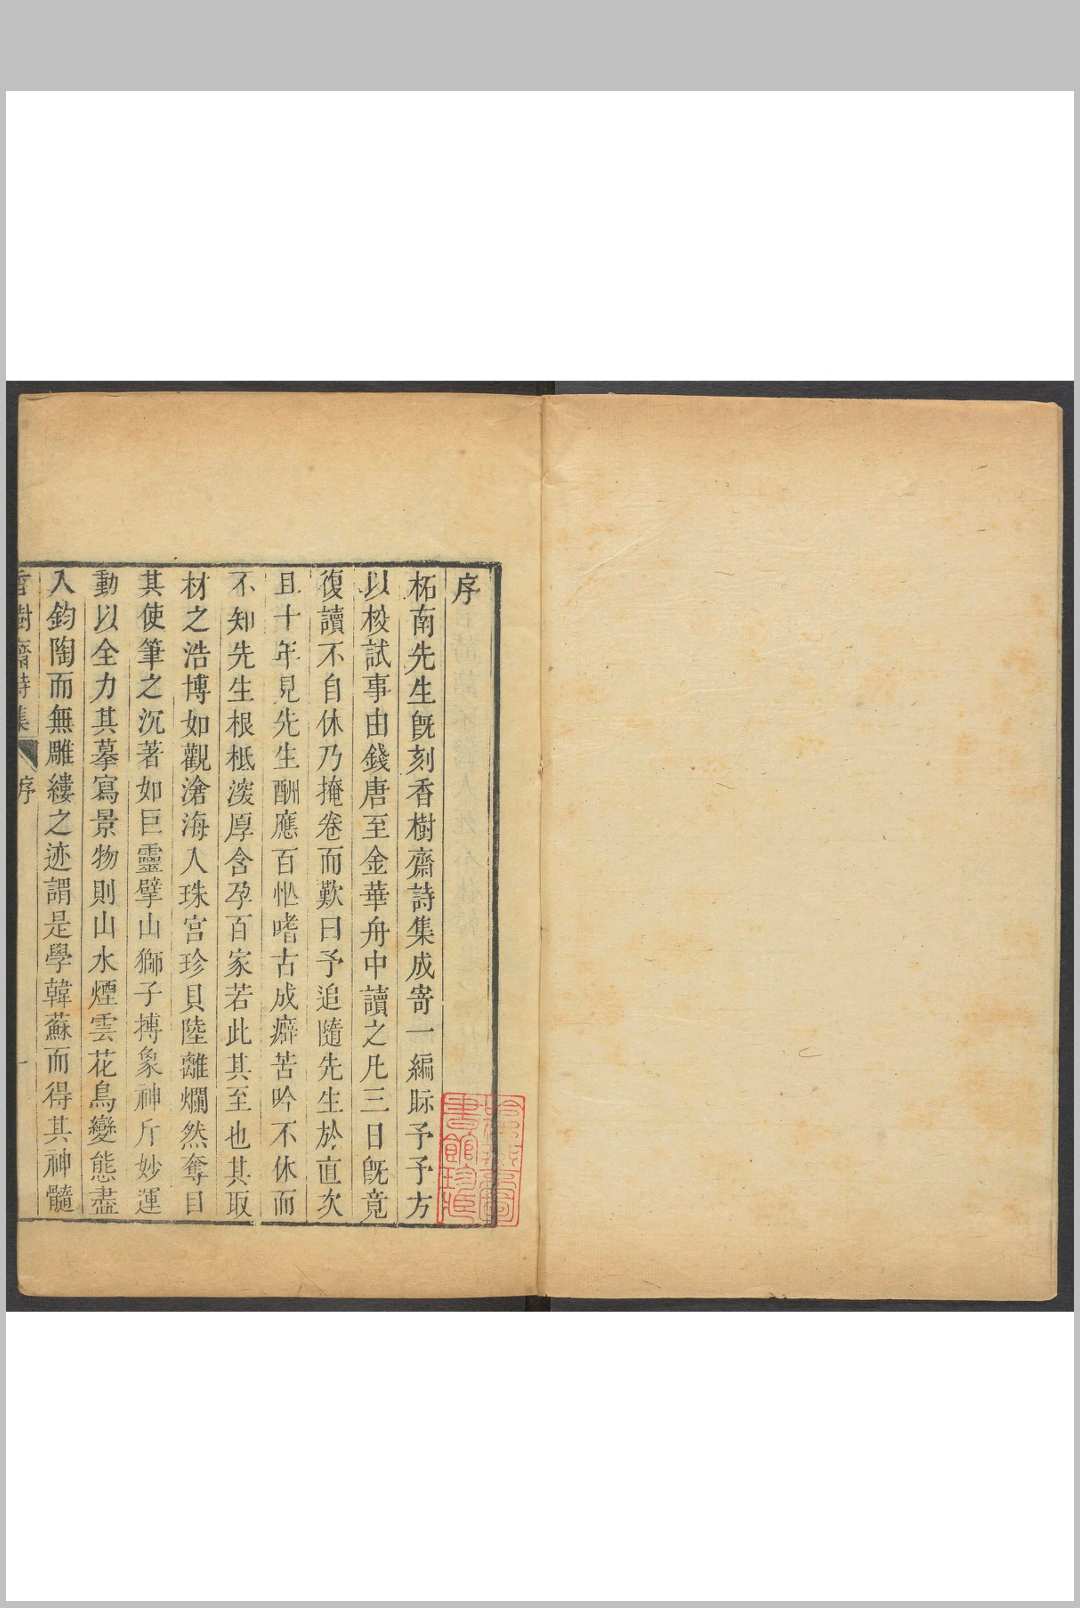 序
柘南先生旣刻香樹齋詩集成寄一編眎予予方
以校試事由錢唐至金華舟中讀之凡三日旣竟
復讀不自休乃掩卷而歎曰予追隨先生於直次
且十年見先生酬應百忙嗜古成癖苦吟不休而
不知先生根柢深厚含孕百家若此其至也其取
材之浩博如觀滄海人珠宮珍貝陸離爛然奪目
其使筆之沉著如巨靈擘山獅子搏象神斤妙運
動以全力其摹寫景物則山水煙雲花鳥變態盡
入鈞陶而無雕鏤之迹謂是學韓蘇而得其神髓
香樹齋詩集 序 一
哈佛燕京圖
書館珍藏